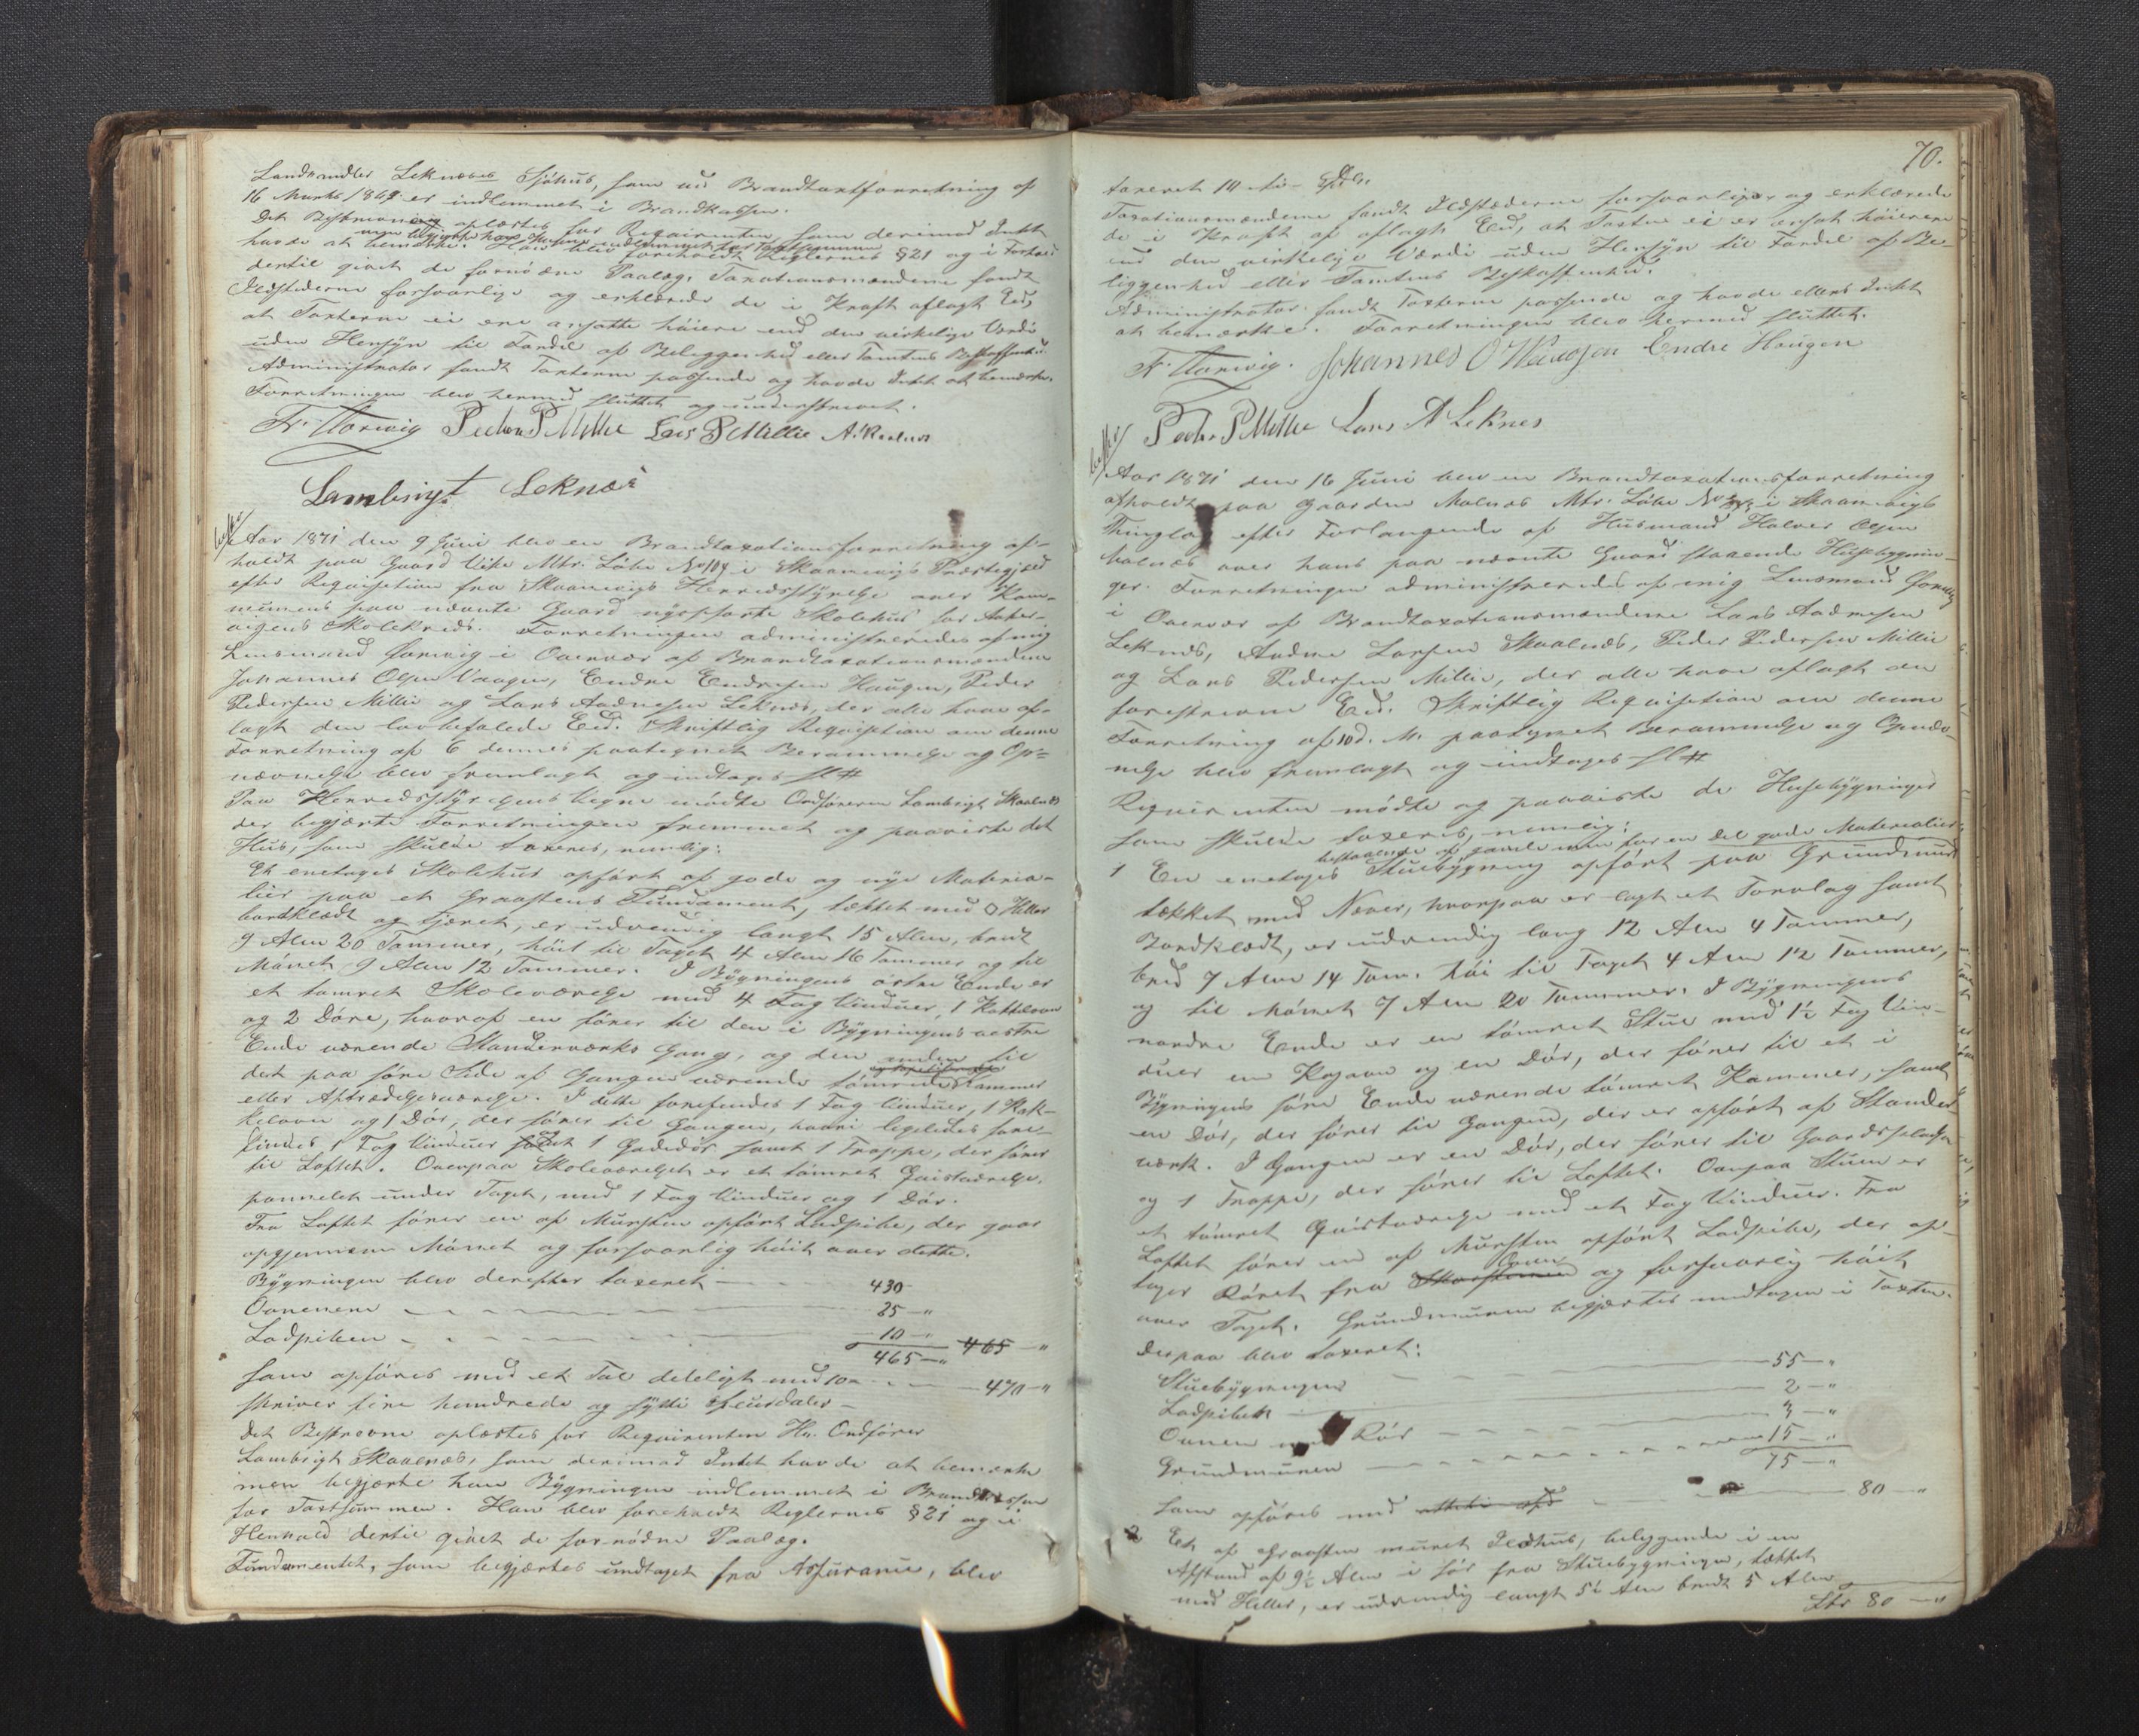 Landhandler Leknæses Sjøhus, som ved Brandtaxtforretning af
16 Marts 1869 er indlemmet i Brandkassen.
Det Beskrevne oplæstes for Reqvirenten, som derimod Intet
havde at bemærke. Han blev foreholdt Reglernes § 21 og i Forhold
dertil givet de fornødne Paalæg. Taxationsmændene fandt
Ildstederne forsvarlige og erklærede de i Kraft aflagt Eed,
at Taxterne ei ere ansatte høiere end den virkelige Værdi
uden Hensyn til Fordel af Beliggenhed eller Tomtens Beskaffenhed.
Administrator fandt Taxterne passende og havde Intet at bemærke.
Forretningen blev hermed sluttet og underskrevet.
Fr. Gorvig Peder P Millie Lars P Millie A. Skaalnes
Lambrigt Leknæs
Aar 1871 den 9 Juni blev en Brandtaxationsforretning af-
holdt paa Gaard Vike Mtr. Løbe No 104 i Skaanevigs Præstegjæld
efter Reqvisition fra Skaanevigs Herredsstyrelse over Kom-
munens paa nævnte Gaard nyopførte Skolehus for Aaker-
vigens Skolekreds. Forretningen administreredes af mig
Lensmand Gorvig i Overvær af Brandtaxationsmændene
Johannes Olsen Vaagen, Endre Endresen Haugen, Peder
Pedersen Millie og Lars Aadnesen Leknes, der alle have af-
lagt den lovbefalede Eed. Skriftlig Reqvisition om denne
Forretning af 6 dennes paategnet Berammelse og Op-
nævnelse blev fremlagt og indtages sl #
Paa Herredsstyrelsens Vegne mødte Ordføreren Lambrigt Skaalnes
der begjærte Forretningen fremmet og paaviste det
Hus, som skulde taxeres, nemlig:
Et enetages Skolehus opført af gode og nye Materia-
lier paa et Graastens Fundament, tækket med Heller
bordklædt og tjæret, er udvendig langt 15 Alen, bredt
9 Alen 20 Tommer, høit til Taget 4 Alen 16 Tommer og til
Mønet 9 Alen 12 Tommer. I Bygningens østre Ende er
et tømret Skoleværelse med 4 Fag Vinduer, 1 Kakkelovn
og 2 Døre, hvoraf en fører til den i Bygningens vestre
Ende værende Standerværks Gang, og den anden til
det paa søre Side af Gangen værende tømrede Kammer
eller Aftrædelsesværelse. I dette forefindes 1 Fag Vinduer, 1 Kak-
kelovn og 1 Dør, der fører til Gangen, hvori ligeledes fore-
findes 1 Fag Vinduer og 1 Gadedør samt 1 Trappe, der fører
til Loftet. Ovenpaa Skoleværelset er et tømret Qvistværelse,
pannelet under Taget, med 1 Fag Vinduer og 1 Dør.
Fra Loftet fører en af Mursten opført Ladpibe, der gaar
opgjennem Mønet og forsvarlig høit over dette.
Bygningen blev derefter taxeret — 430
Ovnenene — 25 — "
Ladpiben — 10 — "
465 — " 465 — "
som opføres med et Tal deleligt med 10 — 470 — "
skriver fire hundrede og sytti Speciedaler —
Det Beskrevne oplæstes for Reqvirenten Hr. Ordfører
Lambrigt Skaalnes, som derimod Intet havde at bemærke
men begjærte han Bygningen indlemmet i Brandkassen
for Taxtsummen. Han blev foreholdt Reglernes § 21 og i
Henhold dertil givet de fornødne Paalæg.
Fundamentet, som begjærtes undtaget fra Assurance, blev
70.
taxeret 10 ti Spdlr.
Taxationsmændene fandt Ildstederne forsvarlige og erklærede
de i Kraft af aflagt Eed, at Taxten ei er ansat høiere
end den virkelige Værdi uden Hensyn til Fordel af Be-
liggenhed eller Tomtens Beskaffenhed.
Administrator fandt Taxterne passende og havde ellers Intet
at bemærke. Forretningen blev hermed sluttet.
Fr. Gorvig. Johannes O Vaagen Endre Haugen
Peder P Millie Lars A Leknes
Aar 1871 den 16 Juni blev en Brandtaxationsforretning
afholdt paa Gaarden Malnes Mtr. Løbe No i Skaanevigs
Thinglag efter Forlangende af Husmand Halvor Olsen
Malnes over hans paa nævnte Gaard staaende Husebygnin-
ger. Forretningen administreredes af mig Lensmand Gorvig
i Overvær af Brandtaxationsmændene Lars Aadnesen
Leknes, Aadne Larsen Skaalnes, Peder Pedersen Millie
og Lars Pedersen Millie, der alle have aflagt den
foreskrevne Eed. Skriftlig Reqvisition om denne
Forretning af 10 d. M. paategnet Berammelse og Opnæv-
nelse blev fremlagt og indtages sl #
Reqvirenten mødte og paaviste de Husebygninger
som skulde taxeres, nemlig:
bestaaende af gamle men for en Del gode Materialier
1 En enetages Stuebygning opført paa Grundmur
tækket med Næver, hvorpaa er lagt et Torvlag samt
Bordklædt, er udvendig lang 12 Alen 4 Tommer,
bred 7 Alen 14 Tom. høi til Taget 4 Alen 12 Tommer,
og til Mønet 7 Alen 20 Tommer. I Bygningens
nordre Ende er en tømret Stue med 1½ Fag Vin-
duer en Kogeovn og en Dør, der fører til et i
Bygningens søre Ende værende tømret Kammer, samt
en Dør, der fører til Gangen, der er opført af Stander-
værk. I Gangen er en Dør, der fører til Gaardspladsen
og 1 Trappe, der fører til Loftet. Ovenpaa Stuen er
et tømret Qvistværelse med et Fag Vinduer. Fra
Loftet fører en af Mursten opført Ladpibe, der op-
tager Røret fra Skorstenen Ovnen og forsvarlig høit
over Taget. Grundmuren begjærtes undtagen i Taxten.
Derpaa blev taxeret:
Stuebygningen — 55 — "
Ladpiben — 2 — "
Ovnen med Rør — 3 — "
Grundmuren — 15 — "
75 — "
som opføres med — 80 — "
2 Et af Graasten muret Ildhus, beliggende i en
Afstand af 9½ Alen i sør fra Stuebygningen, tækket
med Heller, er udvendig langt 5½ Alen bredt 5 Alen
Ltr 80 — "